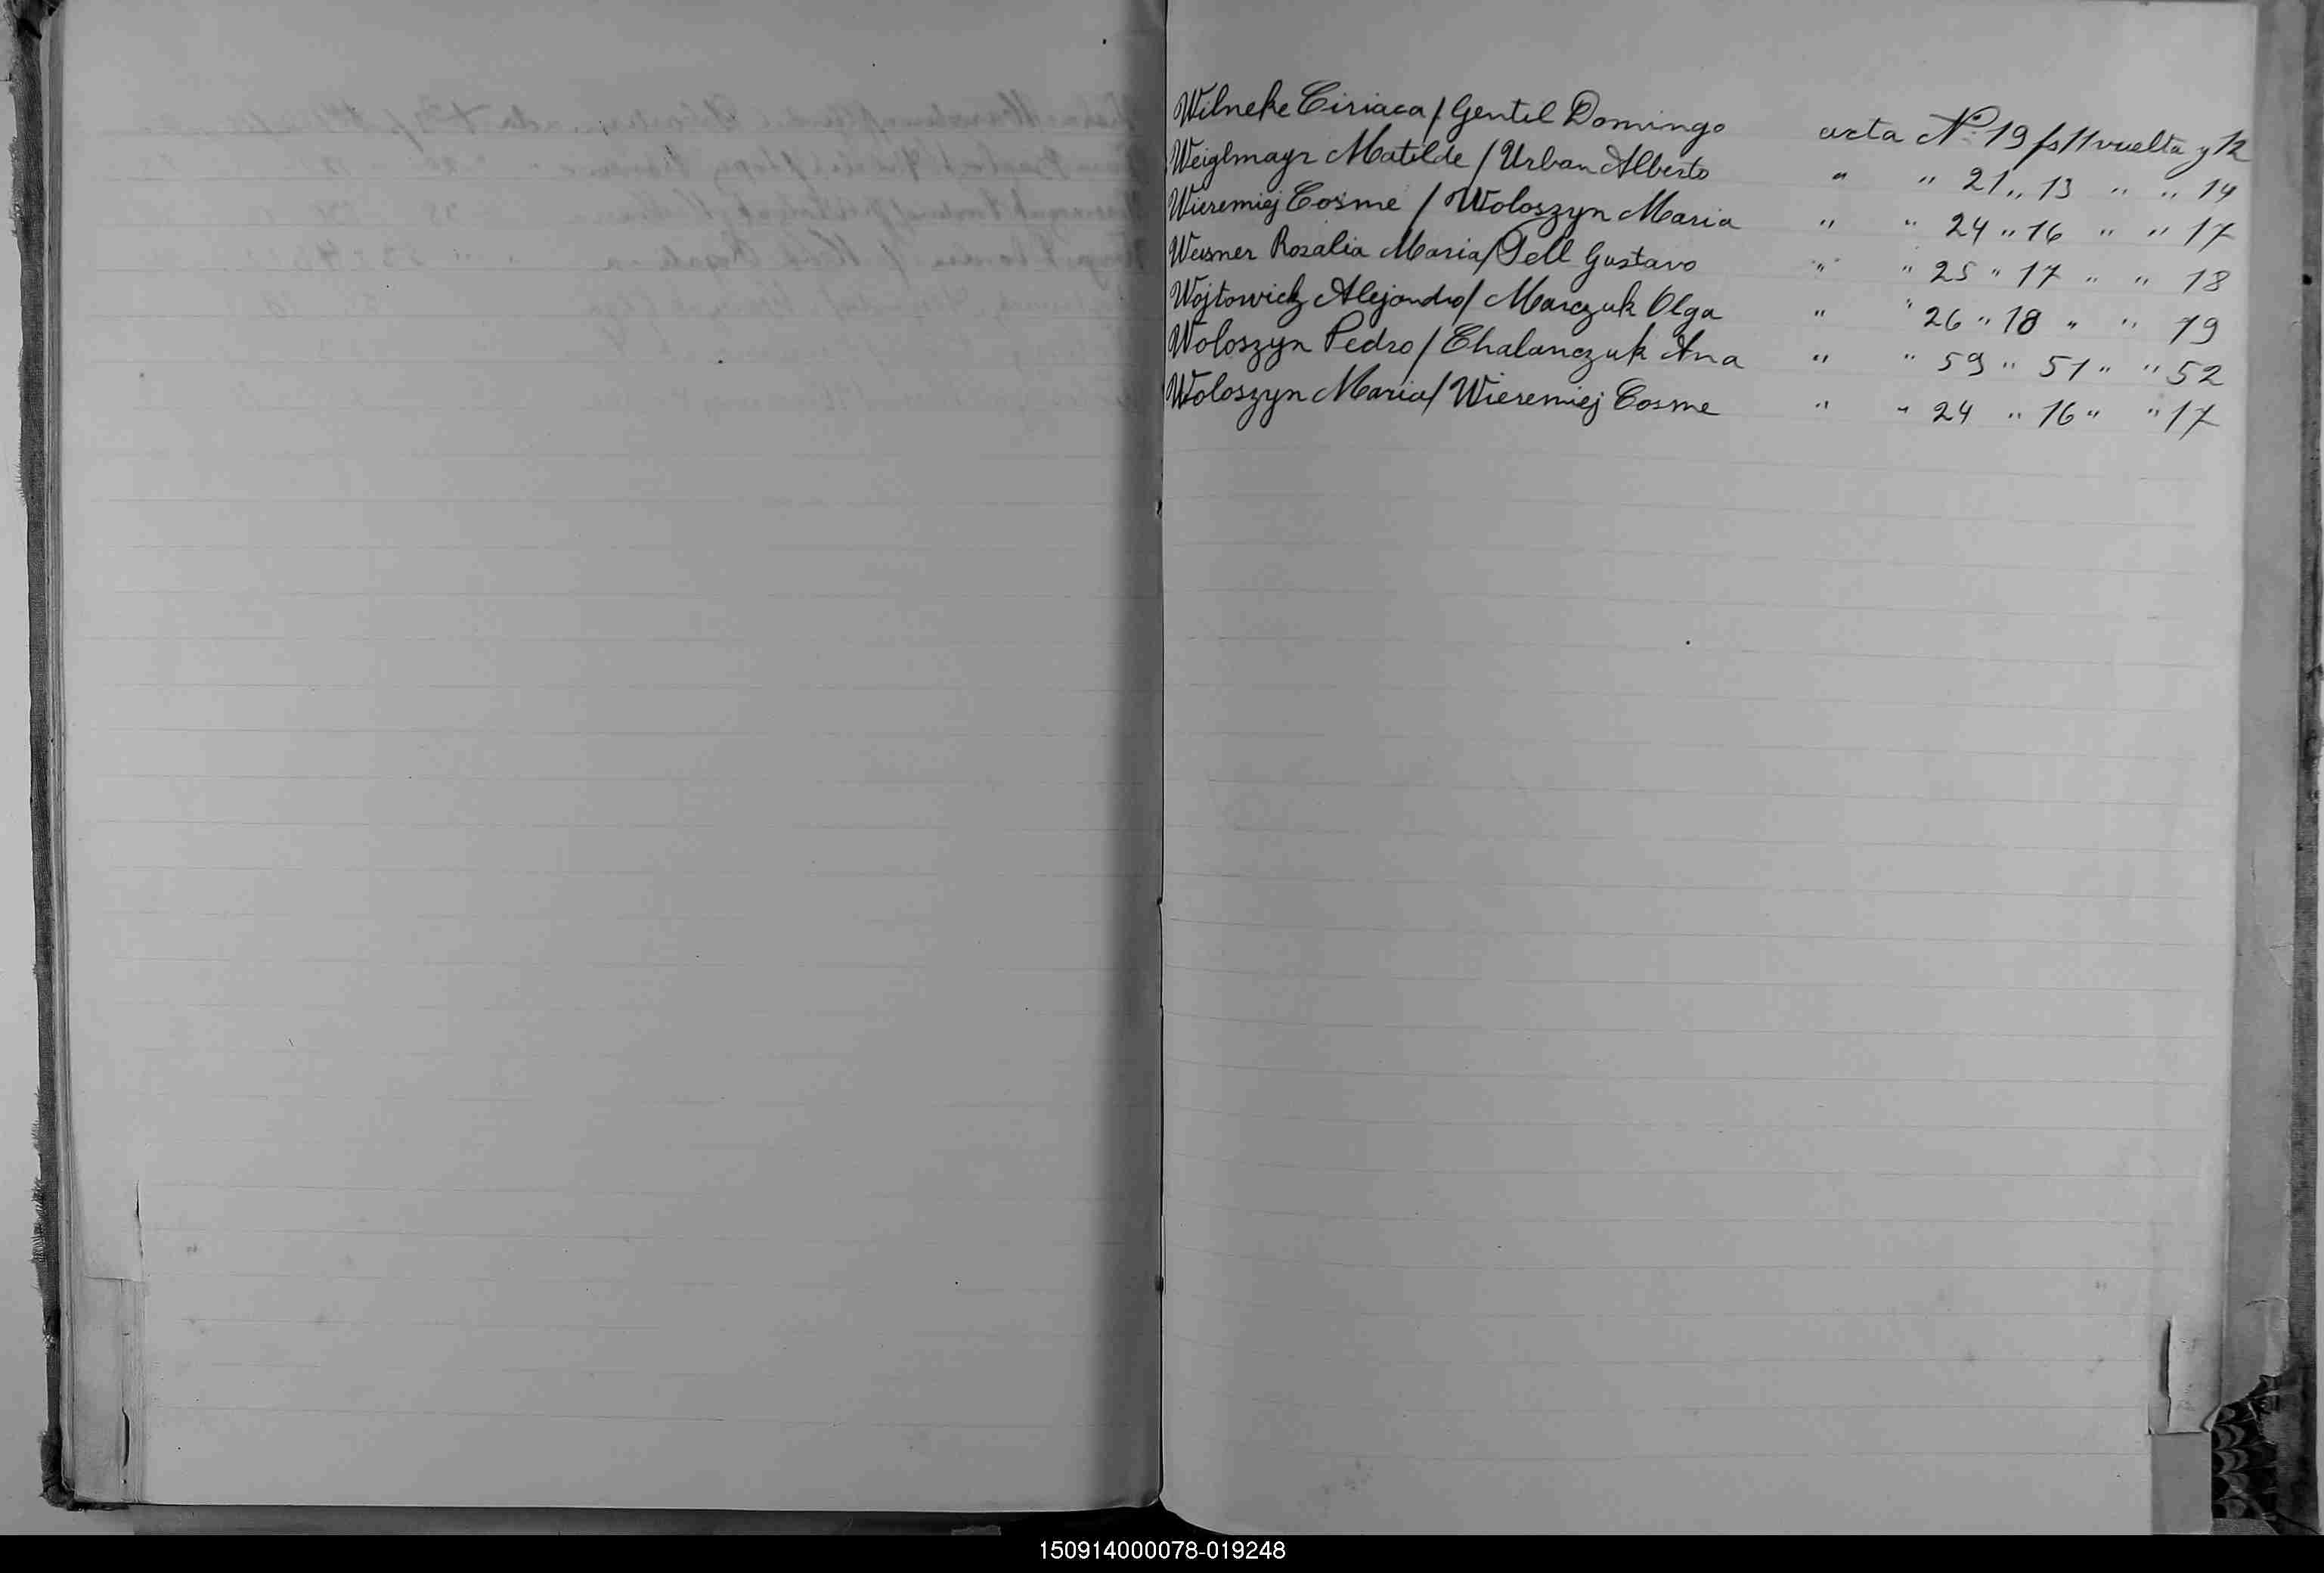 Wilneke Ciriaca / Gentil Domingo acta Nº 19 fs 11 vuelta y 12
Weiglmayr Matilde / Urban Alberto " " 21 " 13 " " 14
Wieremiej Cosme / Woloszyn Maria " " 24 " 16 " " 17
Weisner Rosalia Maria / Pell Gustavo " " 25 " 17 " " 18
Wojtowicz Alejandro / Marczuk Olga " " 26 " 18 " " 19
Woloszyn Pedro / Chalanczuk Ana " " 59 " 51 " " 52
Woloszyn Maria / Wieremiej Cosme " " 24 " 16 " " 17
150914000078-019248